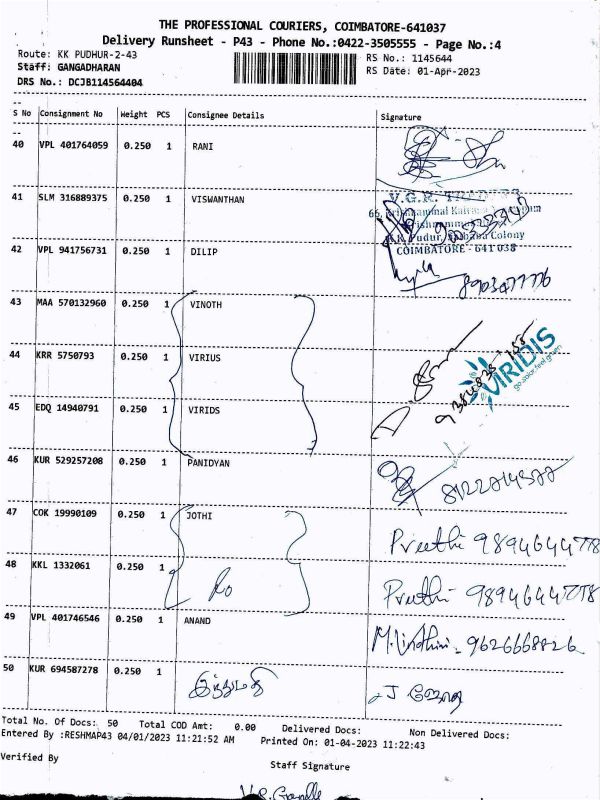 THE PROFESSIONAL COURIERS, COIMBATORE-641037
Delivery Runsheet - P43 - Phone No.:0422-3505555 - Page No.:4
Route: KK PUDHUR-2-43
RS No.: 1145644
Staff: GANGADHARAN
RS Date: 01-Apr-2023
DRS No.: DCJB114564404
S No Consignment No Weight PCS Consignee Details Signature
40 VPL 401764059 0.250 1 RANI
41 SLM 316889375 0.250 1 VISWANTHAN
COIMBATORE - 641 038
42 VPL 941756731 0.250 1 DILIP
43 MAA 570132960 0.250 1 VINOTH
44 KRR 5750793 0.250 1 VIRIUS
VIRIDIS
45 EDQ 14940791 0.250 1 VIRIDS
46 KUR 529257208 0.250 1 PANIDYAN
47 COK 19990109 0.250 1 JOTHI
Preethi
48 KKL 1332061 0.250 1
Preethi
49 VPL 401746546 0.250 1 ANAND
9626668826
50 KUR 694587278 0.250 1 இந்துமதி
Total No. Of Docs: 50 Total COD Amt: 0.00 Delivered Docs: Non Delivered Docs:
Entered By :RESHMAP43 04/01/2023 11:21:52 AM Printed On: 01-04-2023 11:22:43
Verified By
Staff Signature